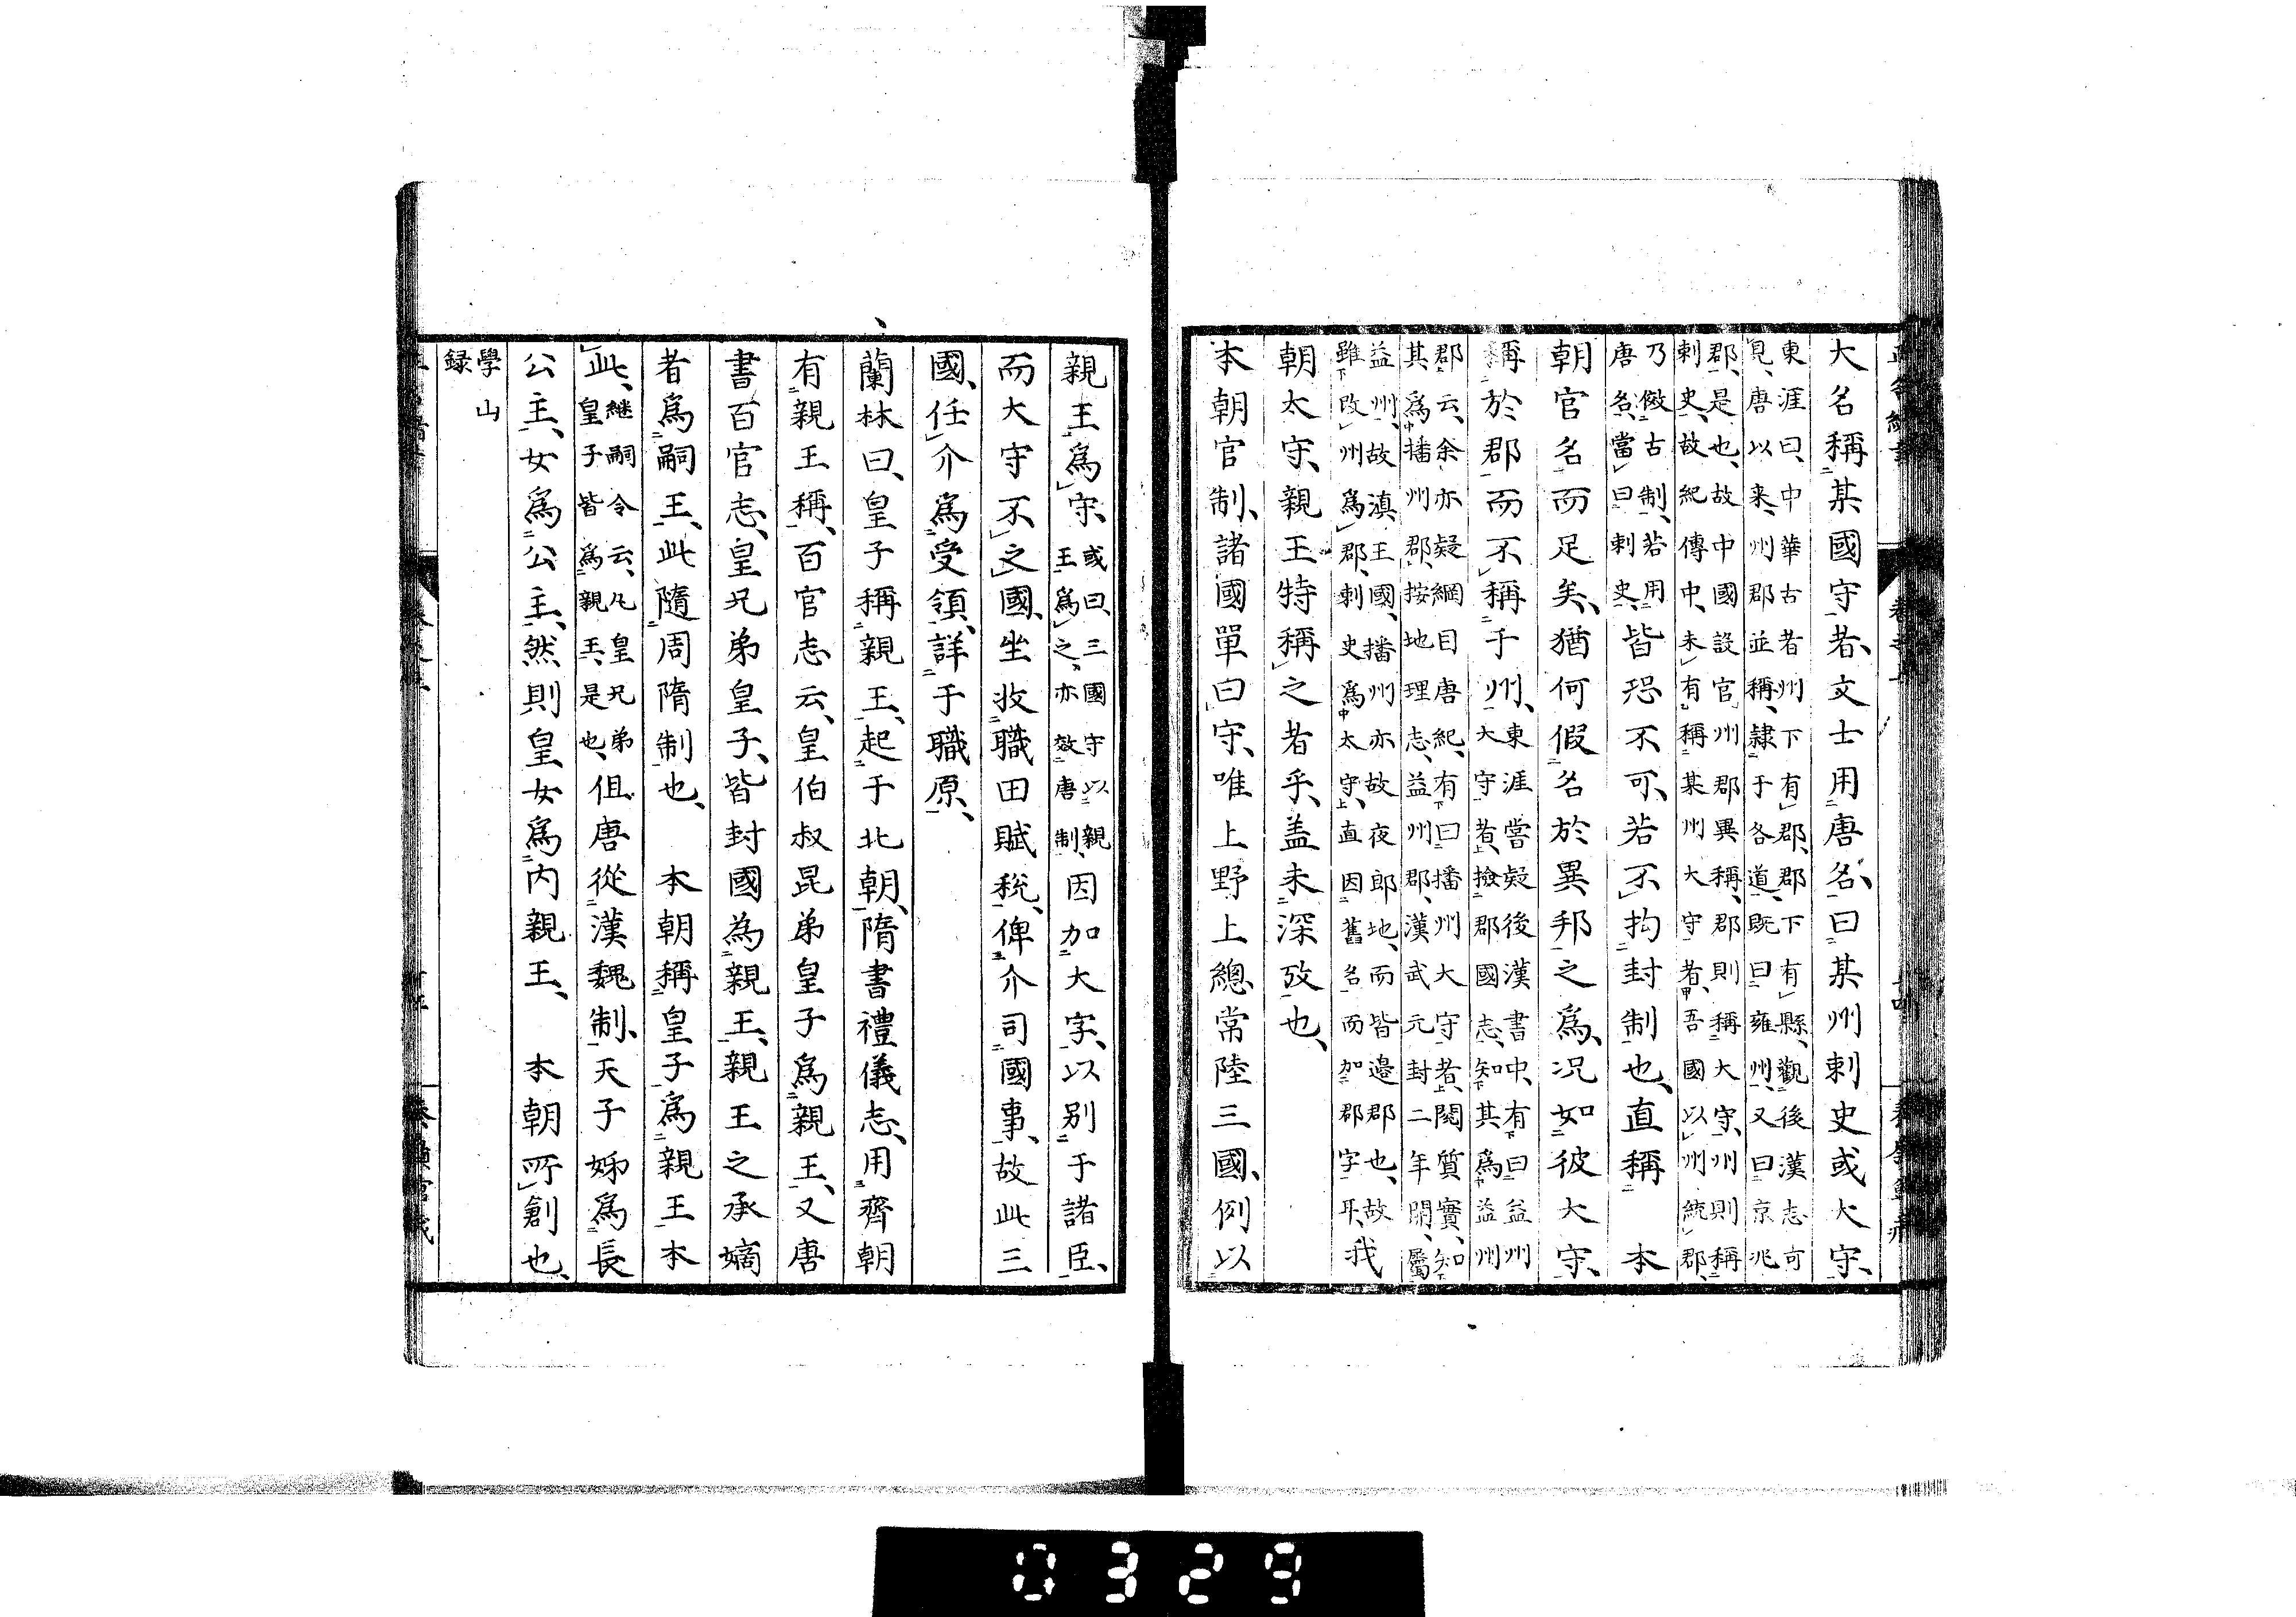 大名稱某國守者、文士用唐名、曰某州刺史或大守、
東涯曰、中華古者州下有郡、郡下有縣、觀後漢志可
見、唐以來、州郡並稱、隷于各道、既曰雍州、又曰京兆
郡、是也、故中國設官州郡異稱、郡則稱大守、州則稱
刺史、故紀傳中、未有稱某州大守者、吾國以州統郡、
乃倣古制、若用
唐名、當曰刺史、皆恐不可、若不拘封制也、直稱 本
朝官名而足矣、猶何假名於異邦之爲、况如彼大守、
稱於郡而不稱于州、
東涯嘗疑後漢書中、有曰益州
大守者、撿郡國志、知其爲益州
郡云、余亦疑綱目唐紀、有曰播州大守者、閱質實、知
其爲播州郡、按地理志、益州郡、漢武元封二年開、屬
益州、故滇王國、播州亦故夜郎地、而皆邉郡也、故
雖改州爲郡、刺史爲太守、直因舊名而加郡字耳、我
朝太守、親王特稱之者乎、盖未深攷也、
本朝官制、諸國單曰守、唯上野上總常陸三國、例以
親王爲守、
或曰、三國守以親
王爲之、亦效唐制、
因加大字、以别于諸臣、
而大守不之國、坐收職田賦稅、俾介司國事、故此三
國、任介爲受領、詳于職原、
蘭林曰、皇子稱親王、起于北朝、隋書禮儀志、用齊朝
有親王稱、百官志云、皇伯叔昆弟皇子爲親王、又唐
書百官志、皇兄弟皇子、皆封國為親王、親王之承嫡
者爲嗣王、此隨周隋制也、 本朝稱皇子爲親王本
此、
継嗣令云、凡皇兄弟
皇子皆爲親王、是也、
但唐從漢魏制、天子姊爲長
公主、女爲公主、然則皇女爲内親王、 本朝所創也、
學山
録